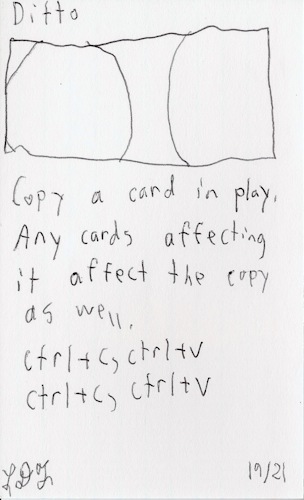 Ditto
Copy a card in play.
Any cards affecting
it affect the copy
as well.
ctrl+c, ctrl+v
ctrl+c, ctrl+v
19/21